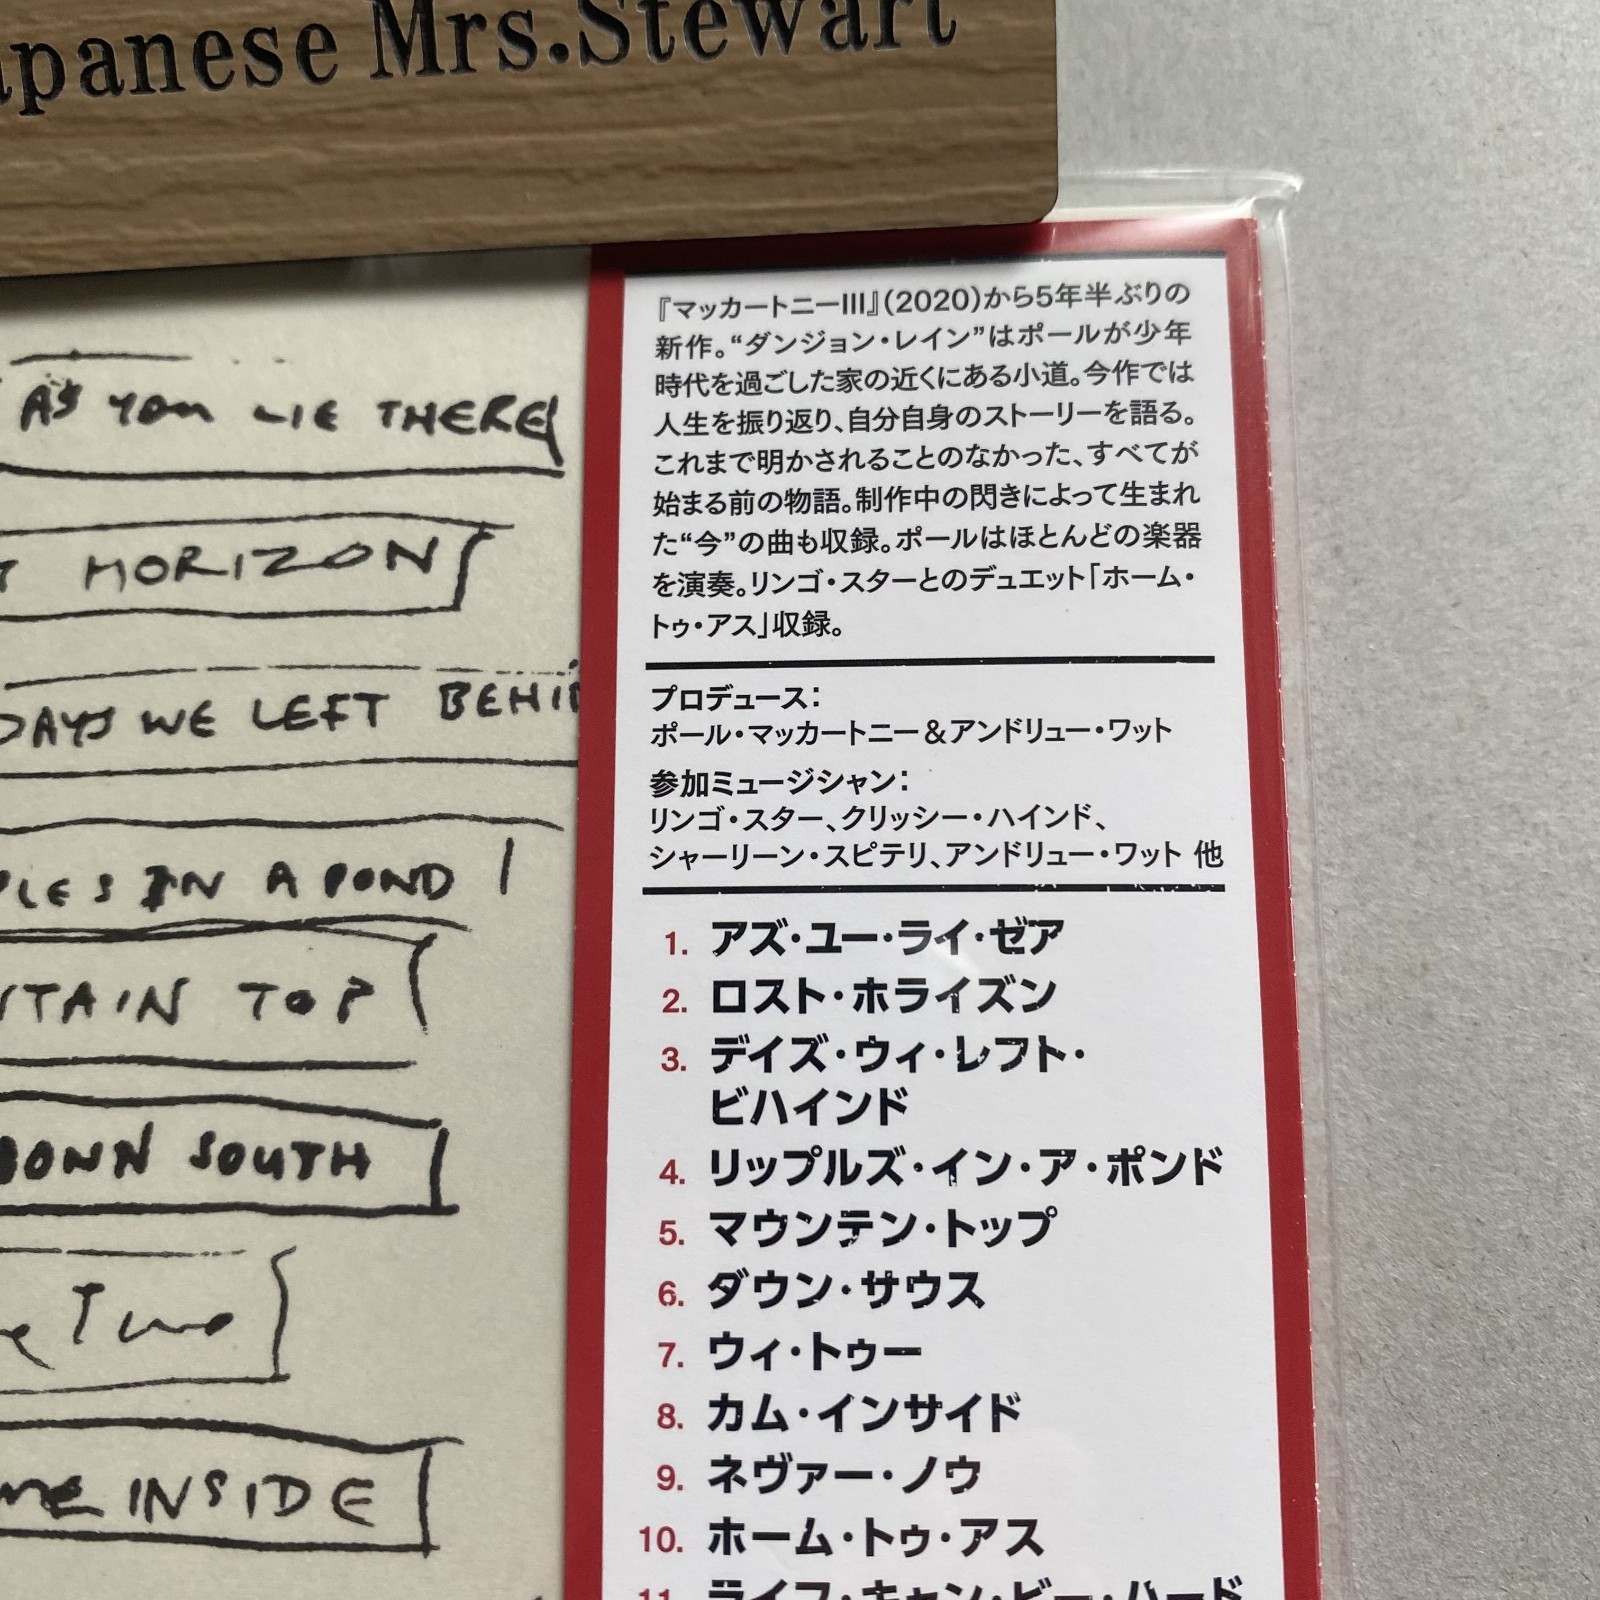 Japanese Mrs.Stewart
AS YOU LIE THERE
HORIZON
DAYS WE LEFT BEHIN
PLES IN A POND
NTAIN TOP
DOWN SOUTH
Two
ME INSIDE
『マッカートニーIII』(2020)から5年半ぶりの
新作。“ダンジョン・レイン”はポールが少年
時代を過ごした家の近くにある小道。今作では
人生を振り返り、自分自身のストーリーを語る。
これまで明かされることのなかった、すべてが
始まる前の物語。制作中の閃きによって生まれ
た“今”の曲も収録。ポールはほとんどの楽器
を演奏。リンゴ・スターとのデュエット「ホーム・
トゥ・アス」収録。
プロデュース：
ポール・マッカートニー＆アンドリュー・ワット
参加ミュージシャン：
リンゴ・スター、クリッシー・ハインド、
シャーリーン・スピテリ、アンドリュー・ワット 他
1. アズ・ユー・ライ・ゼア
2. ロスト・ホライズン
3. デイズ・ウィ・レフト・
ビハインド
4. リップルズ・イン・ア・ポンド
5. マウンテン・トップ
6. ダウン・サウス
7. ウィ・トゥー
8. カム・インサイド
9. ネヴァー・ノウ
10. ホーム・トゥ・アス
11. ライフ・キャン・ビー・ハード